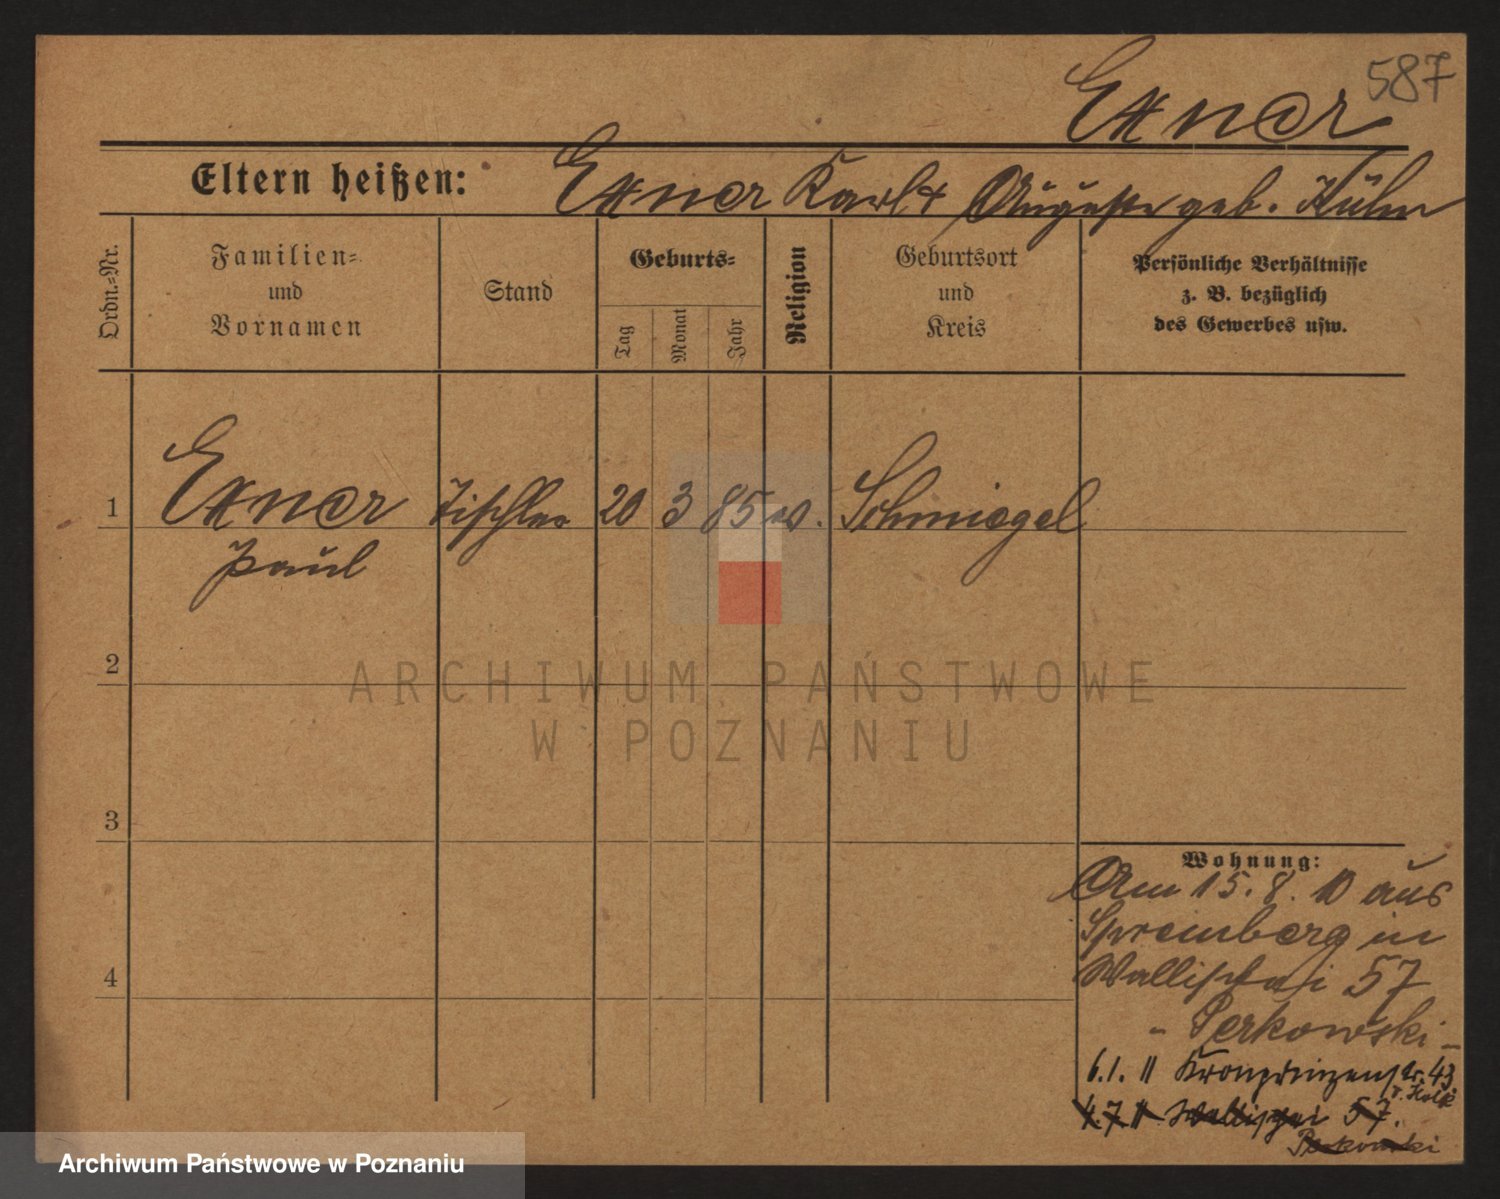 587
Exner
Eltern heißen: Exner Karl + Auguste geb. Kühn
Ordn.-Nr.
Familien-
und
Vornamen
Stand
Geburts-
Tag
Monat
Jahr
Religion
Geburtsort
und
Kreis
Persönliche Verhältnisse
z. B. bezüglich
des Gewerbes usw.
1 Exner Tischler 20 3 85 ev. Schmiegel
Paul
2
ARCHIWUM PAŃSTWOWE
W POZNANIU
3
4
Wohnung:
Am 15. 8. 10 aus
Spremberg in
Wallischei 57
- Perkowski -
6.1. 11 Kronprinzenstr. 43
4.7 11 Wallischei 57.
Perkowski
Archiwum Państwowe w Poznaniu